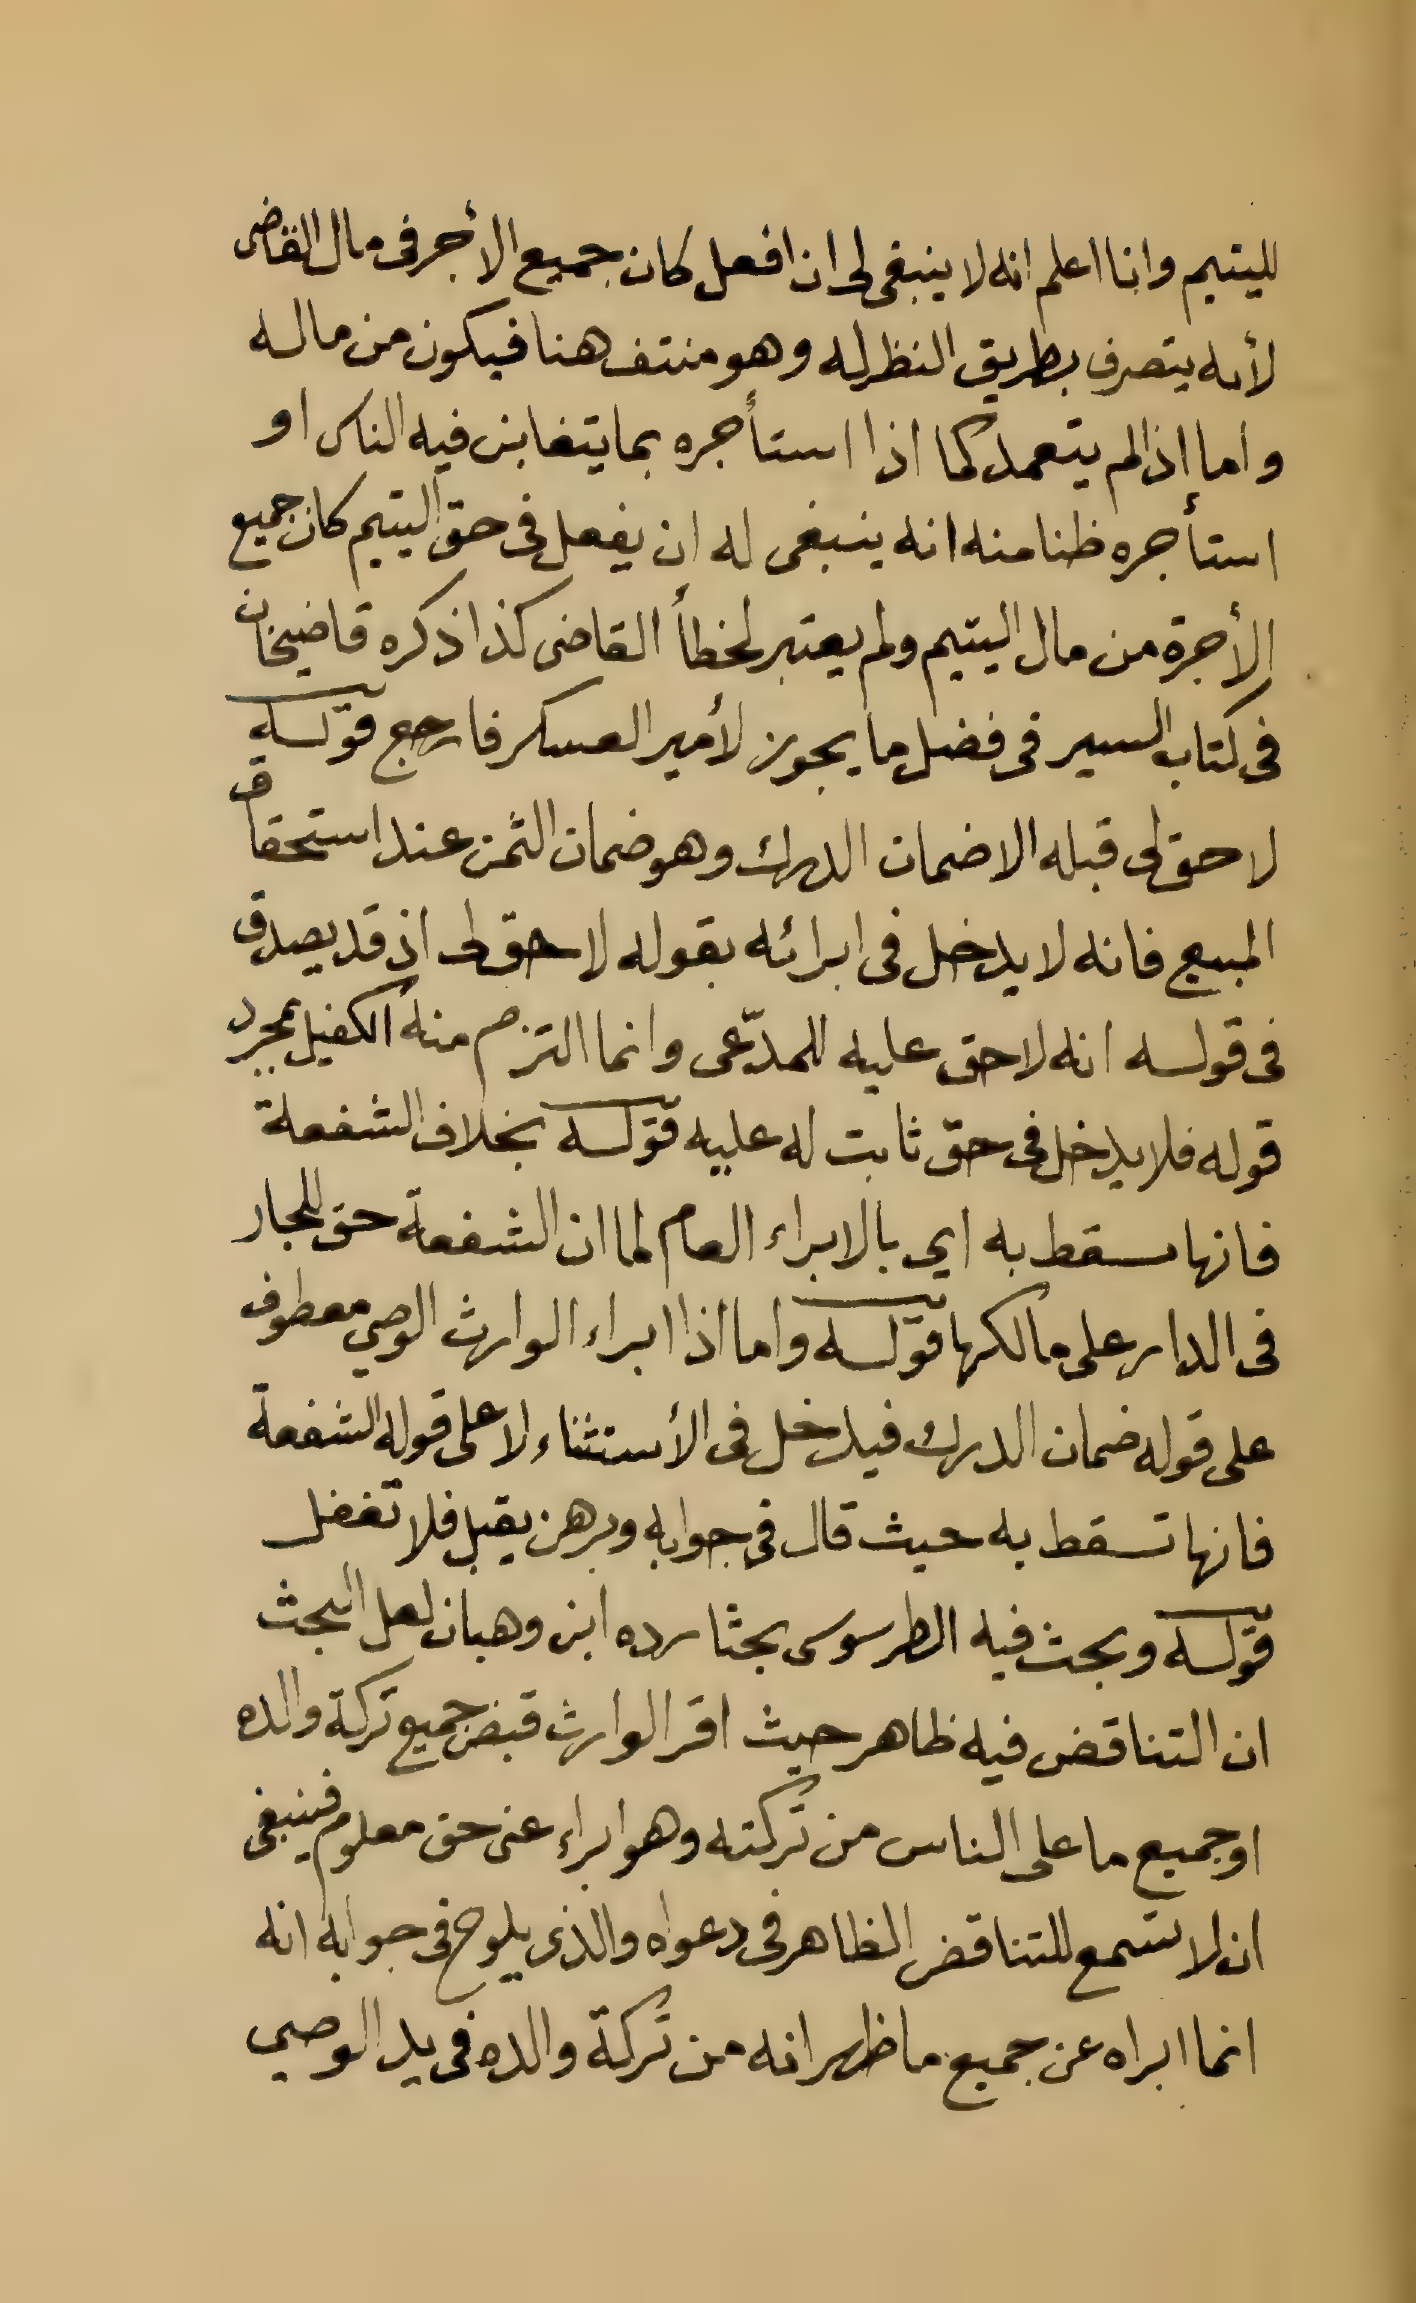 لليتيم وانا اعلم انه لا ينبغى لى ان افعل كان جميع الأجر فى مال القاضى
لأنه يتصرف بطريق النظر له وهو منتف هنا فيكون من ماله
واما اذا لم يتعمد كما اذا استأجره بما يتغابن فيه الناس او
استأجره ظنا منه انه ينبغى له ان يفعل فى حق اليتيم كان جميع
الأجرة من مال اليتيم ولم يعتبر لخطأ القاضى كذا ذكره قاضيخان
فى كتاب السير فى فضل ما يجوز لأمير العسكر فارجع قوله
لا حق لى قبله الا ضمان الدرك وهو ضمان الثمن عند استحقاق
المبيع فانه لا يدخل فى ابرائه بقوله لا حق لى اذ قد يصدق
فى قوله انه لا حق عليه للمدّعى وانما التزم منه الكفيل بمجرد
قوله فلا يدخل فى حق ثابت له عليه قوله بخلاف الشفعة
فانها تسقط به اى بالابراء العام لما ان الشفعة حق للجار
فى الدار على مالكها قوله واما اذا ابراء الوارث الوصى معطوف
على قوله ضمان الدرك فيدخل فى الأستثناء لا على قوله الشفعة
فانها تسقط به حيث قال فى جوابه وبرهن يقبل فلا تغفل
قوله وبحث فيه الطرسوسى بحثا رده ابن وهبان لعل البحث
ان التناقض فيه ظاهر حيث اقر الوارث قبض جميع تركة والده
او جميع ما على الناس من تركته وهو ابراء عن حق معلوم فينبغى
ان لا تسمع للتناقض الظاهر فى دعواه والذى يلوح فى جوابه انه
انما ابراه عن جميع ما ظهر انه من تركة والده فى يد الوصى